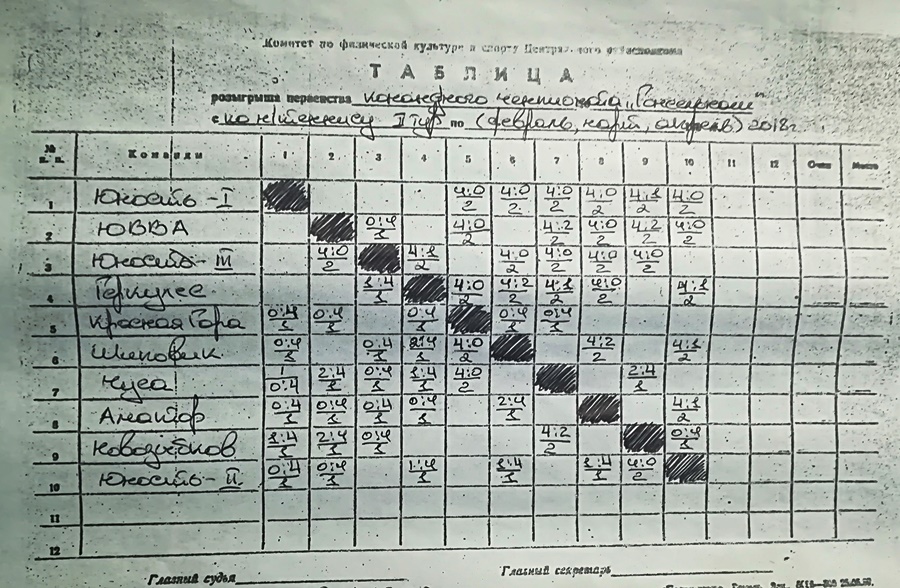 Комитет по физической культуре и спорту
Т А Б Л И Ц А
розыгрыша первенства командного чемпионата
с по н/теннису II тур по (февраль, март, апрель) 2018г.
№ п. п. Команды 1 2 3 4 5 6 7 8 9 10 11 12 Очки Место
1 Юность - I 4:0/2 4:0/2 4:0/2 4:0/2 4:1/2 4:0/2
2 ЮВВА 0:4 4:0/2 4:2/2 4:0/2 4:2/2 4:0/2
3 Юность - III 4:0/2 4:1/2 4:0/2 4:0/2 4:0/2 4:0/2
4 Геркулес 1:4/1 4:0/2 4:2/2 4:1/2 4:0/2 4:1/2
5 Красная Гора 0:4/1 0:4/1 0:4/1 0:4/1 0:4/1
6 Шиповик 0:4/1 0:4/1 2:4/1 4:0/2 4:2/2 4:1/2
7 1/0:4 2:4/1 0:4/1 1:4/1 4:0/2 2:4/1
8 Аматор 0:4/1 0:4/1 0:4/1 0:4/1 2:4/1 4:1/2
9 1:4/1 2:4/1 0:4/1 4:2/2 0:4/1
10 Юность - II 0:4/1 0:4/1 1:4/1 1:4/1 1:4/1 4:0/2
11
12
Главный судья Главный секретарь